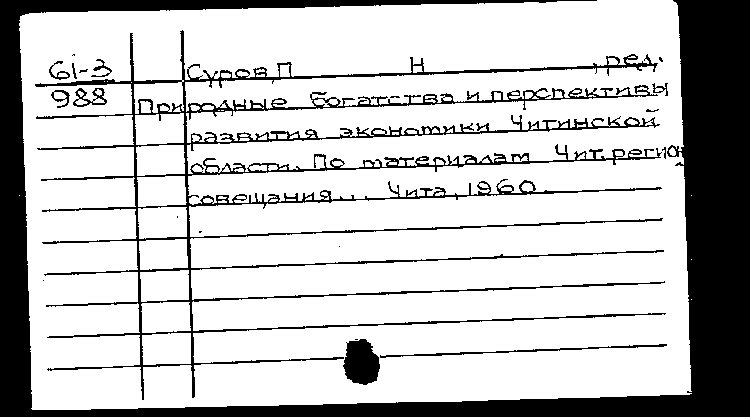 61-3 Суров, П Н , ред.
988 Природные богатства и перспективы
развития экономики Читинской
области. По материалам Чит. регион.
совещания... Чита, 1960.